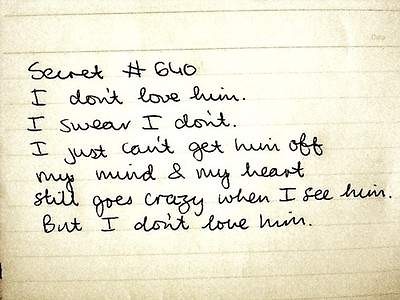 Secret # 640
I don't love him.
I swear I don't.
I just can't get him off
my mind & my heart
still goes crazy when I see him.
But I don't love him.